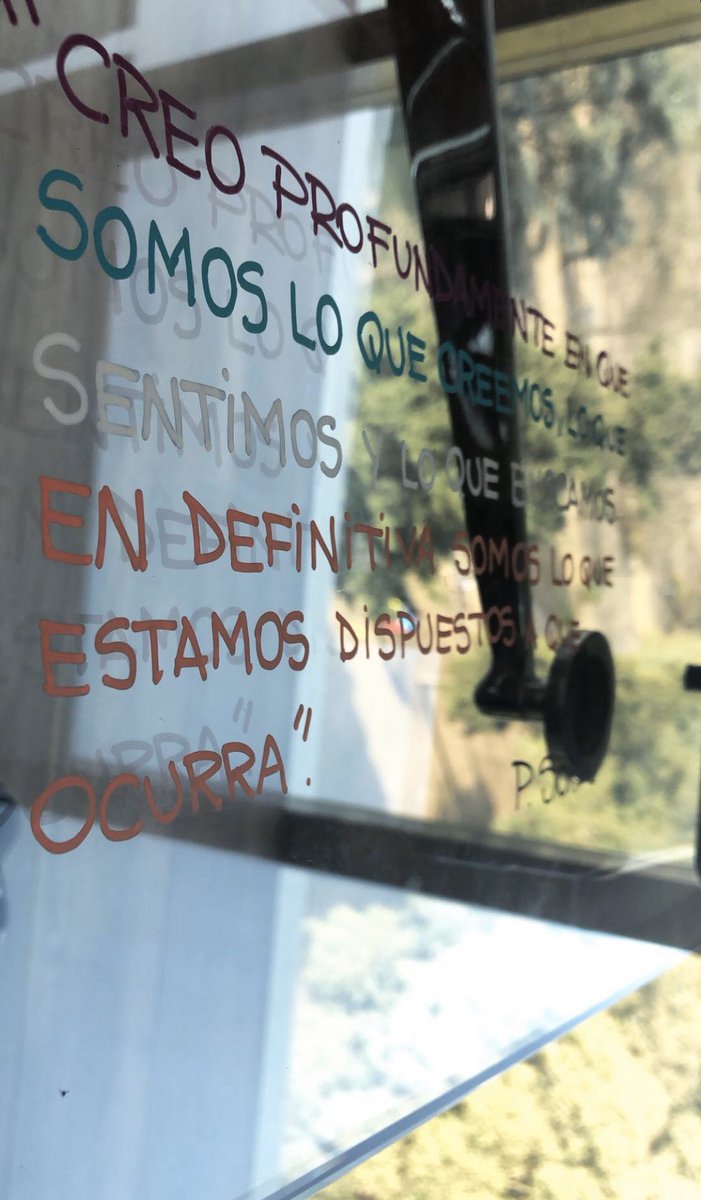 "CREO PROFUNDAMENTE EN QUE
SOMOS LO QUE CREEMOS, LO QUE
SENTIMOS Y LO QUE BUSCAMOS.
EN DEFINITIVA SOMOS LO QUE
ESTAMOS DISPUESTOS A QUE
OCURRA".
P.